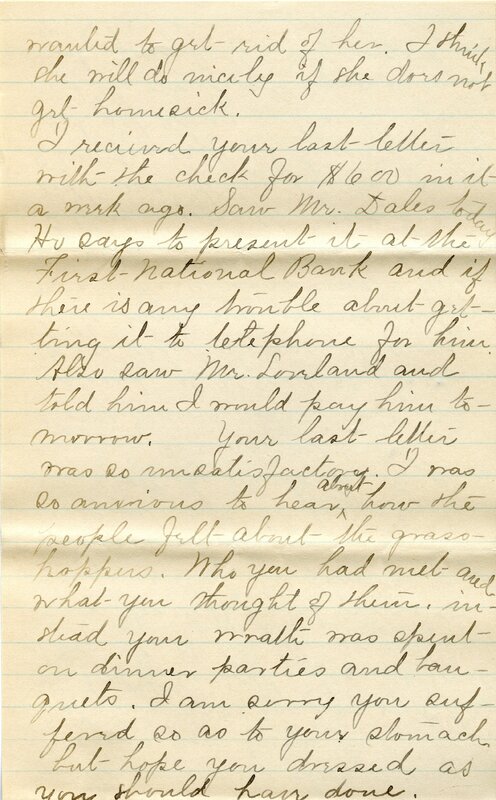 wanted to get rid of her. I think
she will do nicely if she does not
get homesick.
I recieved your last letter
with the check for $600 in it
a week ago. Saw Mr. Dales today
He says to present it at the
First National Bank and if
there is any trouble about get-
ting it to telephone for him
Also saw Mr. Loveland and
told him I would pay him to-
morrow. Your last letter
was so unsatisfactory. I was
so anxious to hear about how the
people felt about the grass-
hoppers. Who you had met and
what you thought of them. in-
stead your wrath was spent
on dinner parties and ban-
quets. I am sorry you suf-
fered so as to your stomach
but hope you dressed as
you should have done.